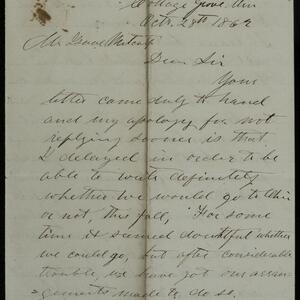 Cottage Grove, Min
Octr. 28th 1862
Mr Isaac Metcalf
Dear Sir
Your
letter came duly to hand
and my apology for not
replying sooner is that
I delayed in order to be
able to write definitely
whether we would go to Ohio
or not, this fall, For some
time it seemed doubtful whether
we could go, but after considerable
trouble, we have got our arran
=gements made to do so,